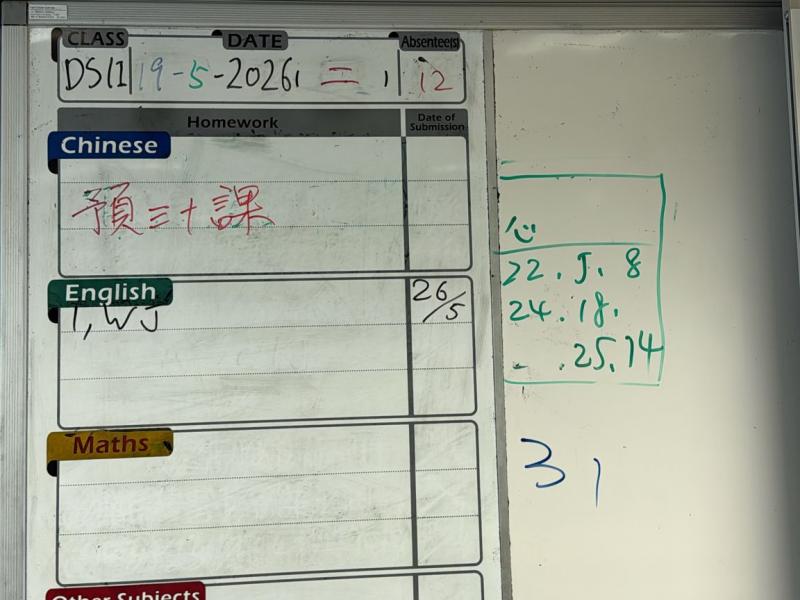 CLASS DATE Absentee(s)
19-5-2026, 二, 12
Homework Date of Submission
Chinese
預三十課
English 26/5
1, WJ
Maths
Other Subjects
心
22. 5. 8
24. 18.
. 25. 14
31